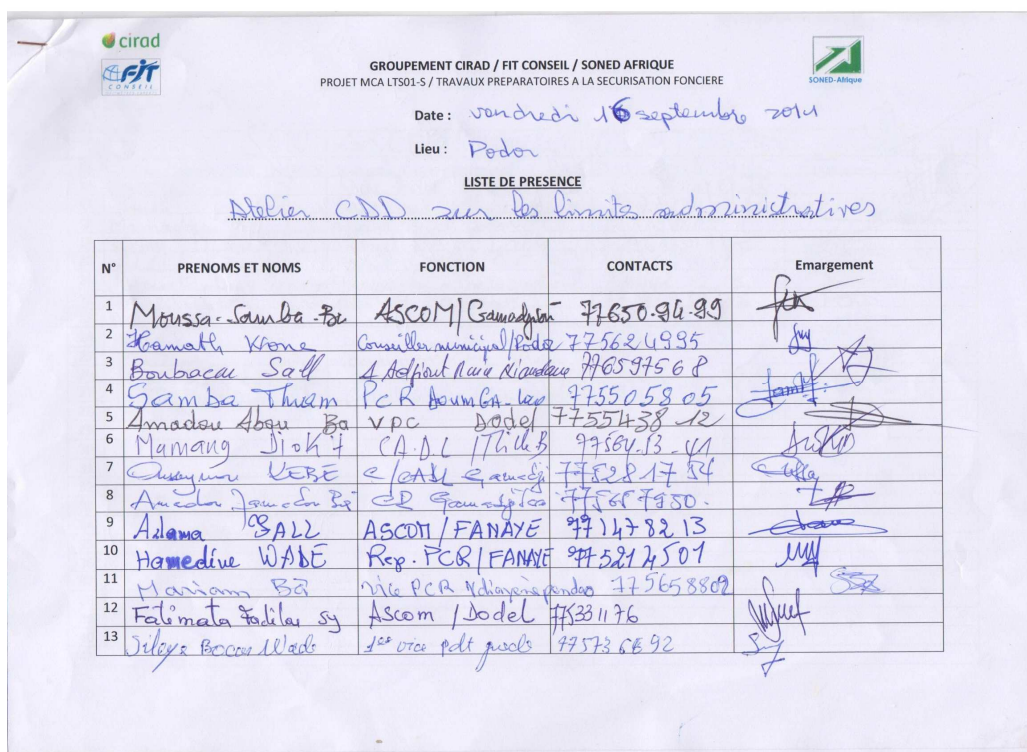 cirad
FIT
CONSEIL
SONED-Afrique
GROUPEMENT CIRAD / FIT CONSEIL / SONED AFRIQUE
PROJET MCA LTS01-S / TRAVAUX PREPARATOIRES A LA SECURISATION FONCIERE
Date : vendredi 16 septembre 2011
Lieu : Podor
LISTE DE PRESENCE
Atelier CDD sur les limites administratives
N° PRENOMS ET NOMS FONCTION CONTACTS Emargement
1 Moussa Samba Ba ASCOM 77650.94.99
2 Hamath Kone Conseiller municipal/Podor 775624995
3 Boubacar Sall 776597568
4 Samba Thiam PCR 7755058 05
5 Amadou Abou Ba VPC Dodel 7755438 12
6 Mamang CADL 77564.13.41
7 KEBE
8 Amadou Ba 775687950
9 Adama SALL ASCOM / FANAYE 771478213
10 Hamedine WADE Rep. PCR / FANAYE 775214501
11 Mariam Ba Vice PCR 775658802
12 Fatimata Fadilou Sy Ascom / Dodel 775331176
13 1er vice pdt